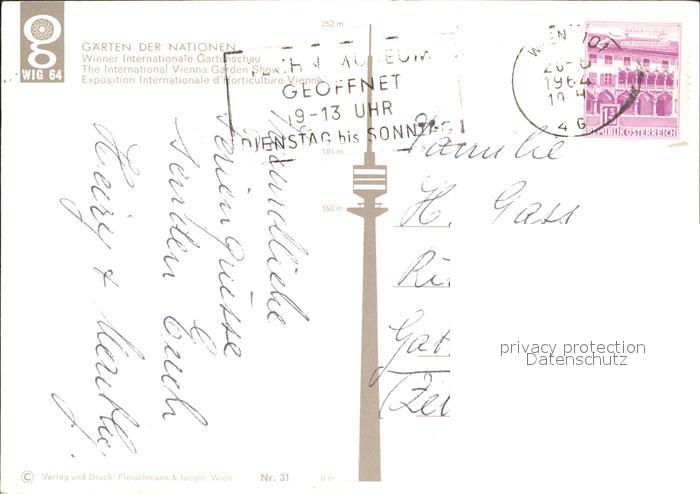 WIG 64
GÄRTEN DER NATIONEN
Wiener Internationale Gartenschau
The International Vienna Garden Show
Exposition Internationale d'Horticulture Vienne
252 m
181 m
150 m
0 m
GEÖFFNET
9-13 UHR
DIENSTAG bis SONNTAG
WIEN 101
1964
4 G
1.50
REPUBLIK ÖSTERREICH
Freundliche
Feriengrüsse
senden Euch
Heinz +
Familie
H. Gass
Ri
Gat
(Zei
privacy protection
Datenschutz
© Verlag und Druck: Fleischmann & Jaeger, Wien
Nr. 31